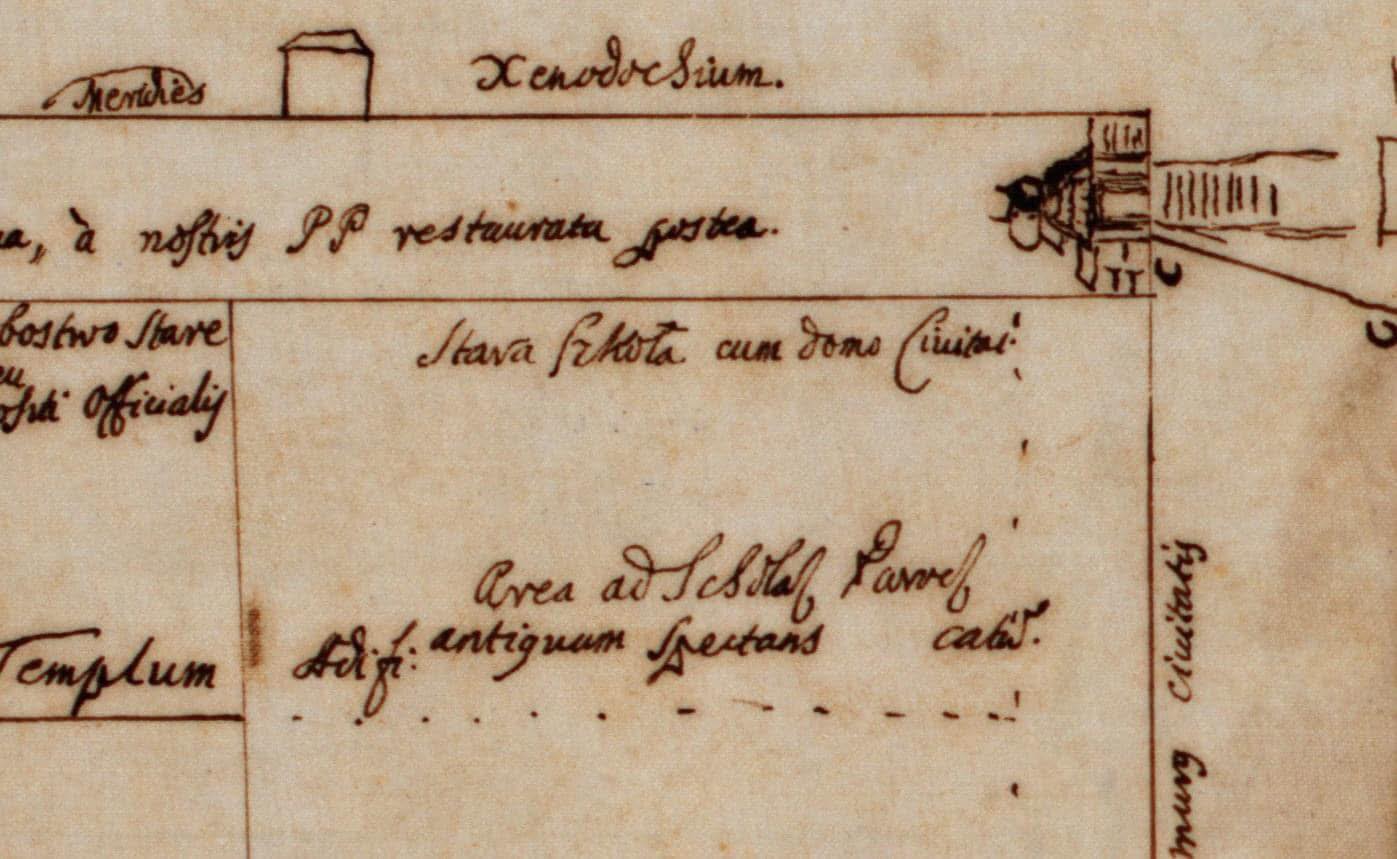 Meridies
Xenodochium.
à nostris PP restaurata postea.
bostwo Stare
Officialis
Stara Szkoła cum domo Civitat:
Area ad Scholas Parves
Ædifi: antiquum spectans
Templum
murus civitatis
C
C